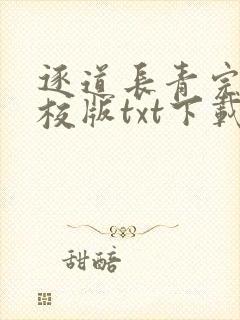 逐道長青完
校版txt下載
甜醅